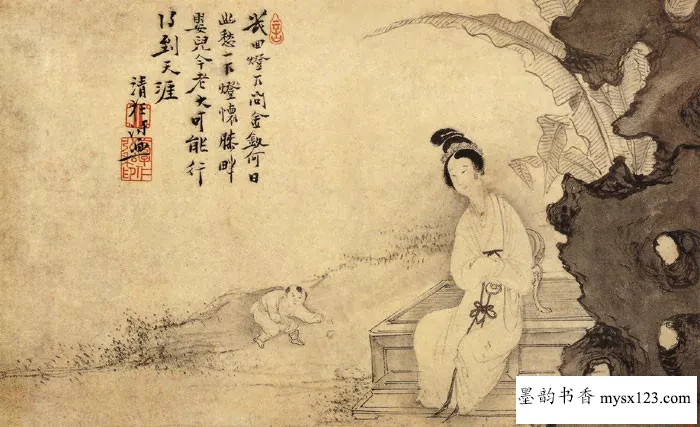 幾回燈下問金釵何日
此愁一下燈懷膝畔
嬰兒今老大可能行
得到天涯
清狂
墨韵书香 mysx123.com